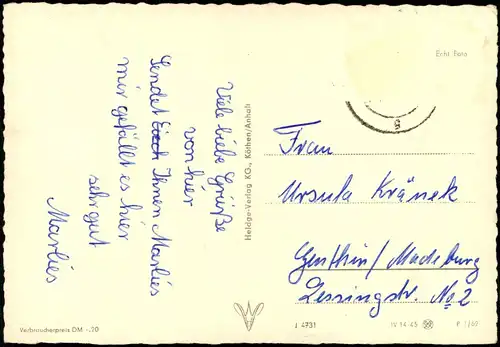 Viele liebe Grüße
von hier
sendet Euch Ihnen Marlies
mir gefällt es hier
sehr gut
Marlies
Heldge-Verlag KG., Köthen/Anhalt
Echt Foto
Frau
Ursula Kränek
Genthin/Madeburg
Lessingstr. No 2
Verbraucherpreis DM -.20
J 4731
IV 14 45
P 1/62